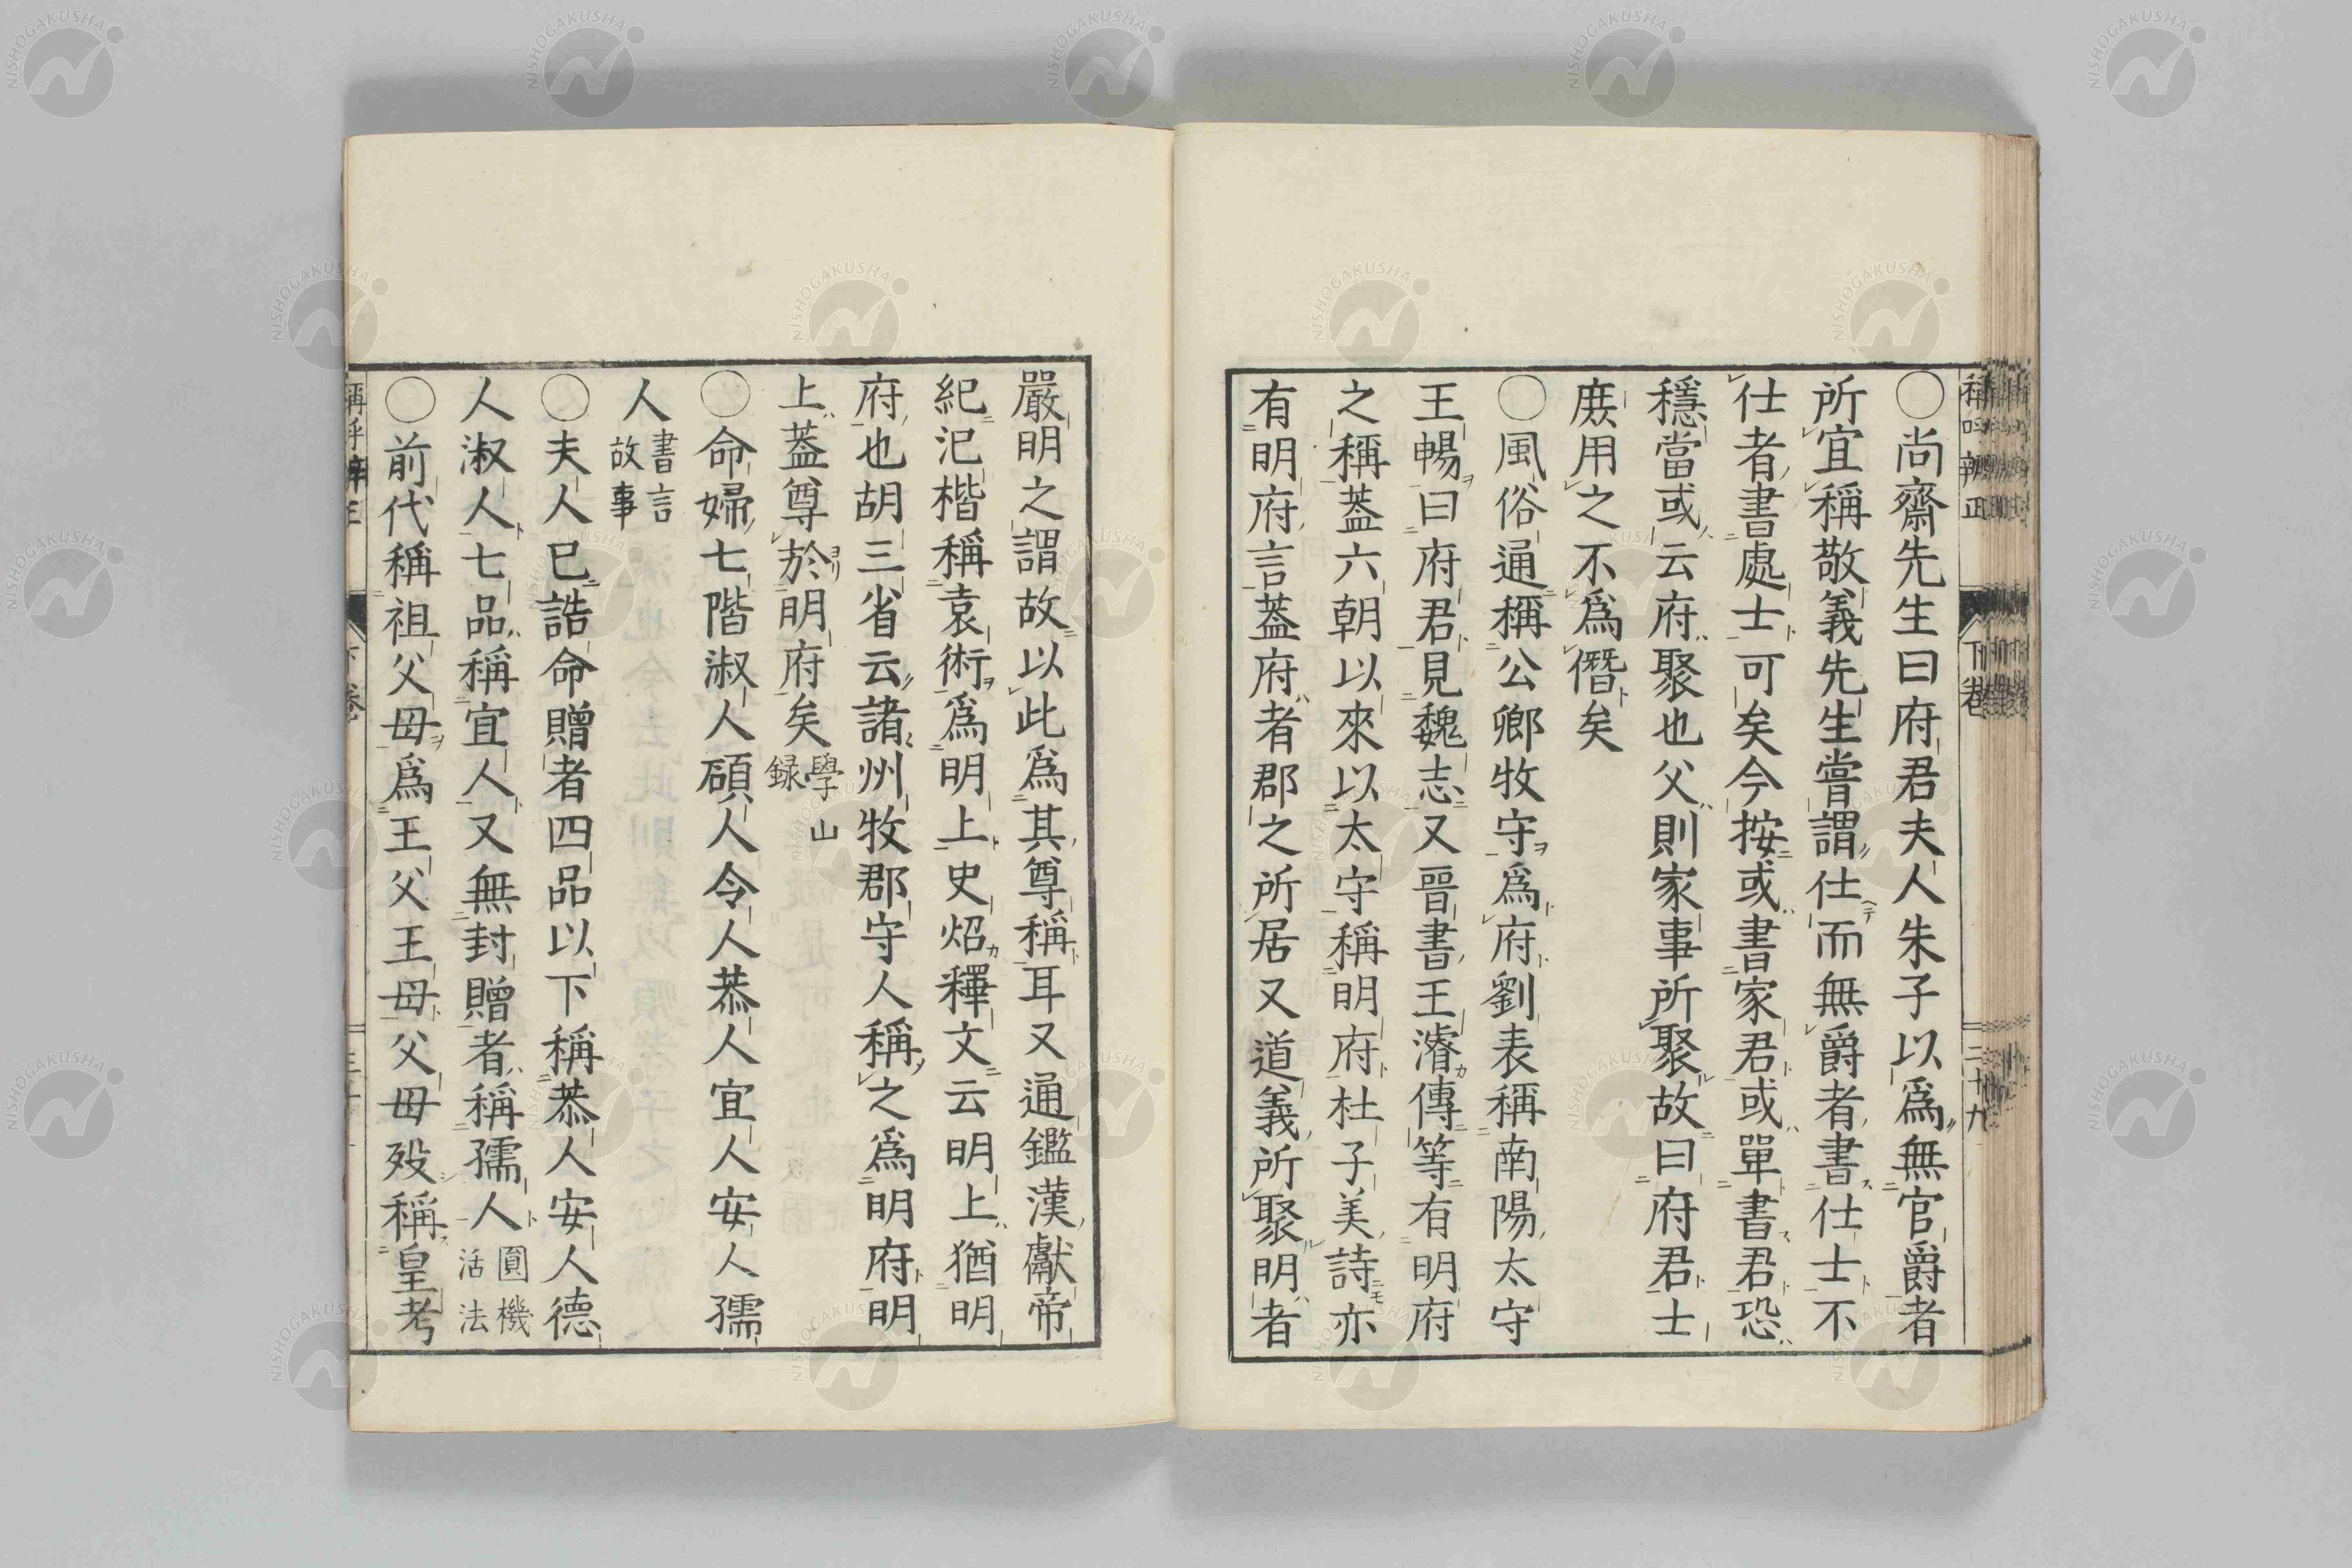 稱呼辨正 下卷 二十九
○尚齋先生曰府君夫人朱子以爲無官爵者
所宜稱敬義先生嘗謂仕而無爵者書仕士不
仕者書處士可矣今按或書家君或單書君恐
穩當或云府聚也父則家事所聚故曰府君士
庶用之不爲僭矣
○風俗通稱公卿牧守爲府劉表稱南陽太守
王暢曰府君見魏志又晉書王濬傳等有明府
之稱蓋六朝以來以太守稱明府杜子美詩亦
有明府言蓋府者郡之所居又道義所聚明者
嚴明之謂故以此爲其尊稱耳又通鑑漢獻帝
紀汜楷稱袁術爲明上史炤釋文云明上猶明
府也胡三省云諸州牧郡守人稱之爲明府明
上蓋尊於明府矣學山
録
○命婦七階淑人碩人令人恭人宜人安人孺
人書言
故事
○夫人巳誥命贈者四品以下稱恭人安人德
人淑人七品稱宜人又無封贈者稱孺人圓機
活法
○前代稱祖父母爲王父王母父母殁稱皇考
稱呼辨正 下卷